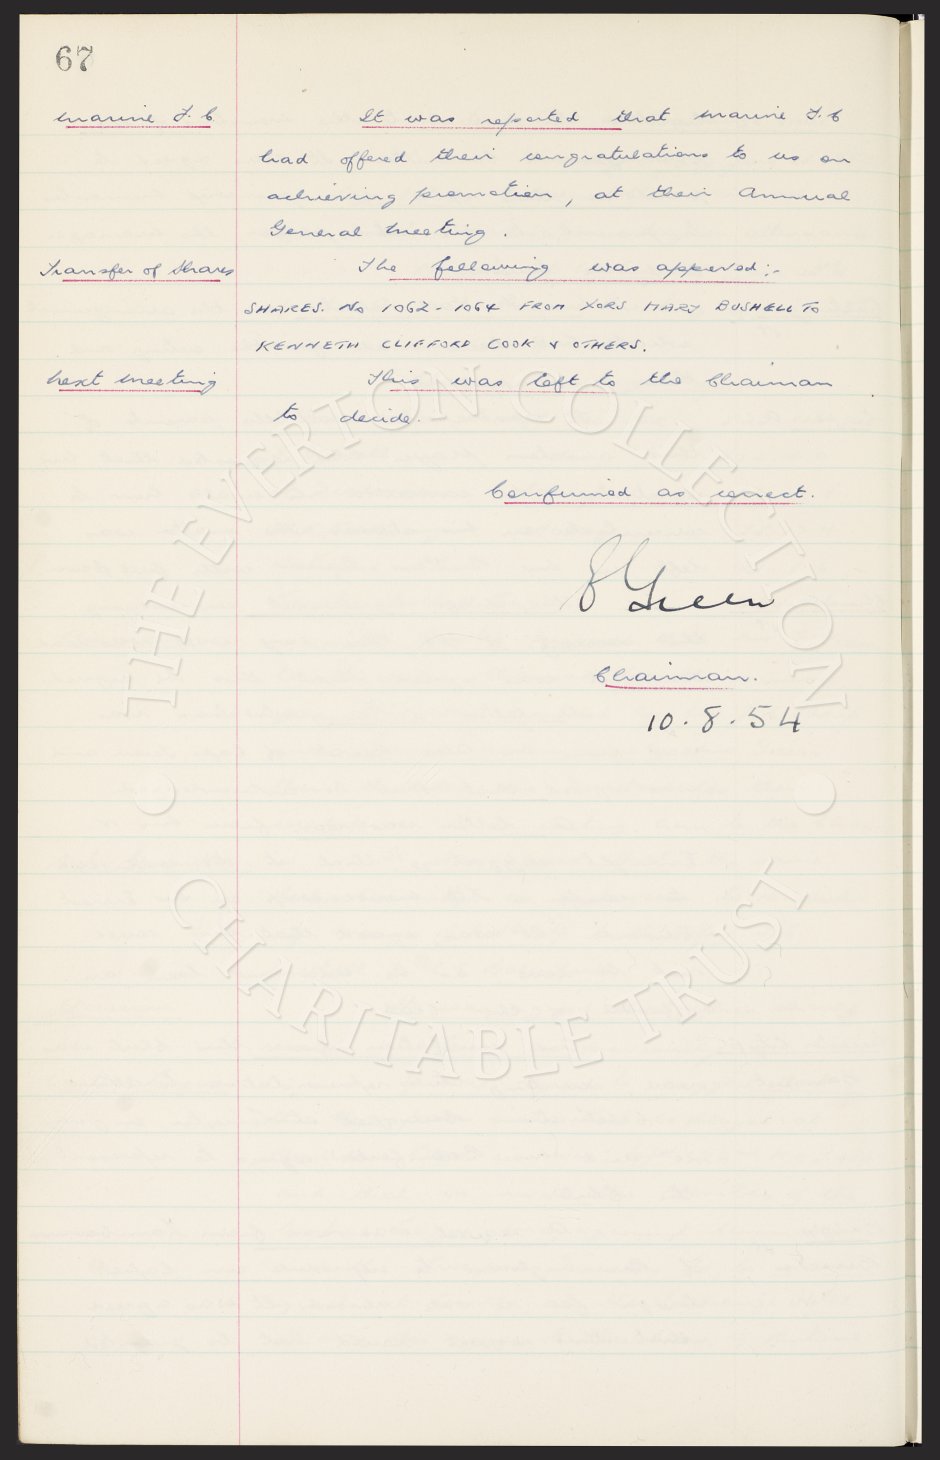 67
Marine F.C It was reported that Marine F.C
had offered their congratulations to us on
achieving promotion, at their Annual
General Meeting.
Transfer of Shares The following was approved:-
SHARES. No 1062 - 1064 FROM XORS MARY BUSHELL TO
KENNETH CLIFFORD COOK & OTHERS.
Next Meeting This was left to the Chairman
to decide.
Confirmed as correct.
E Green
Chairman.
10.8.54
THE EVERTON COLLECTION
CHARITABLE TRUST